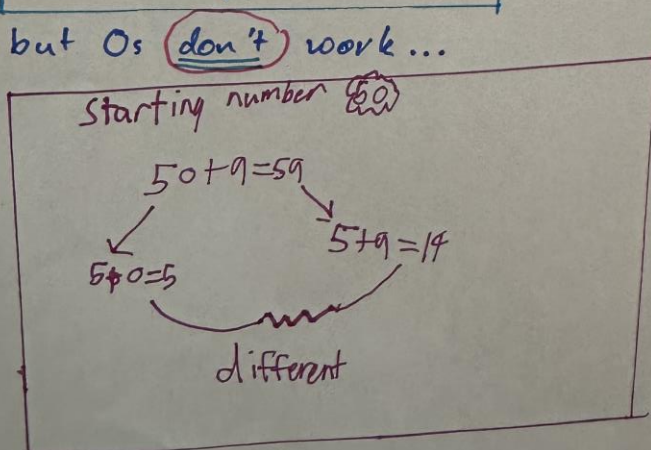 but 0s don't work...
starting number 50
50+9=59
5+9=14
5+0=5
different